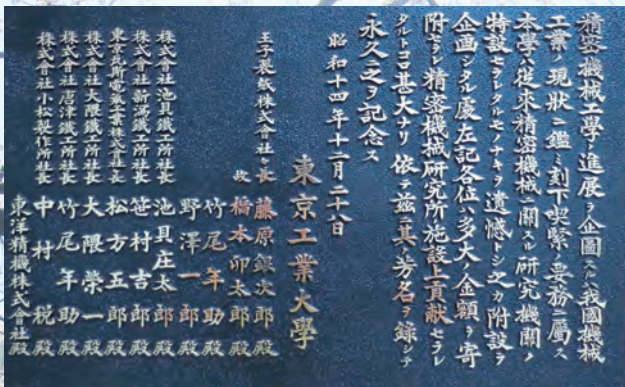 精密機械工學ノ進展ヲ企圖スルハ我國機械
工業ノ現狀ニ鑑ミ刻下喫緊ノ要務ニ屬ス
本學ハ從來精密機械ニ關スル研究機關ノ
特設セラレタルモノナキヲ遺憾トシ之カ附設ヲ
企画シタル處左記各位ハ多大ノ金額ヲ寄
附セラレ精密機械研究所施設上貢献セラレ
タルトコロ甚大ナリ依テ茲ニ其ノ芳名ヲ錄シテ
永久之ヲ記念ス
昭和十四年十二月二十八日
東京工業大學
王子製紙株式會社々長 藤原銀次郎殿
故 橋本卯太郎殿
竹尾年助殿
野澤一郎殿
株式會社池貝鐵工所社長 池貝庄太郎殿
株式會社新潟鐵工所社長 笹村吉郎殿
東京瓦斯電氣工業株式會社社長 松方五郎殿
株式會社大隈鐵工所社長 大隈榮一殿
株式會社唐津鐵工所社長 竹尾年助殿
株式會社小松製作所社長 中村税殿
東洋精機株式會社殿